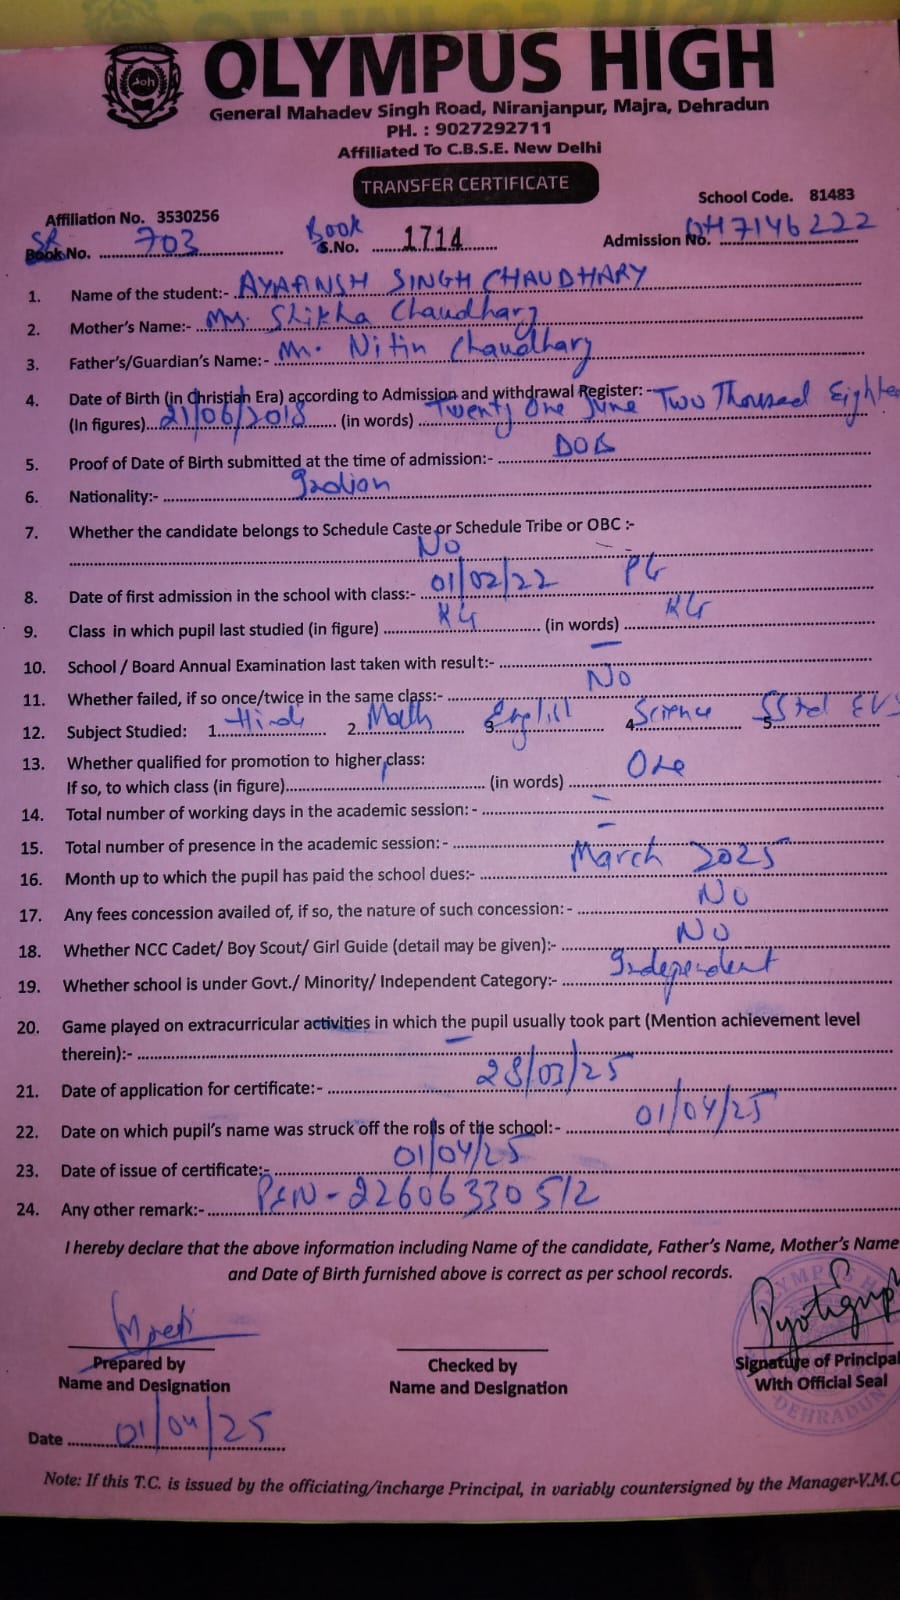 OLYMPUS HIGH
General Mahadev Singh Road, Niranjanpur, Majra, Dehradun
PH. : 9027292711
Affiliated To C.B.S.E. New Delhi
TRANSFER CERTIFICATE
School Code. 81483
Affiliation No. 3530256
SR No. 703 Book S.No. 1714 Admission No. OH7146222
1. Name of the student:- AYAANSH SINGH CHAUDHARY
2. Mother's Name:- Mrs. Shikha Chaudhary
3. Father's/Guardian's Name:- Mr. Nitin Chaudhary
4. Date of Birth (in Christian Era) according to Admission and withdrawal Register:-
(In figures) 21/06/2018 (in words) Twenty One June Two Thousand Eighteen
5. Proof of Date of Birth submitted at the time of admission:- DOB
6. Nationality:- Indian
7. Whether the candidate belongs to Schedule Caste or Schedule Tribe or OBC :-
No
8. Date of first admission in the school with class:- 01/02/22 PG
9. Class in which pupil last studied (in figure) KG (in words) KG
10. School / Board Annual Examination last taken with result:- —
11. Whether failed, if so once/twice in the same class:- No
12. Subject Studied: 1. Hindi 2. Math 3. English 4. Science 5. EVS
13. Whether qualified for promotion to higher class:
If so, to which class (in figure) (in words) One
14. Total number of working days in the academic session: - —
15. Total number of presence in the academic session: - —
16. Month up to which the pupil has paid the school dues:- March 2025
17. Any fees concession availed of, if so, the nature of such concession: - No
18. Whether NCC Cadet/ Boy Scout/ Girl Guide (detail may be given):- No
19. Whether school is under Govt./ Minority/ Independent Category:- Independent
20. Game played on extracurricular activities in which the pupil usually took part (Mention achievement level
therein):- —
21. Date of application for certificate:- 28/03/25
22. Date on which pupil's name was struck off the rolls of the school:- 01/04/25
23. Date of issue of certificate:- 01/04/25
24. Any other remark:- PEN-22606330512
I hereby declare that the above information including Name of the candidate, Father's Name, Mother's Name
and Date of Birth furnished above is correct as per school records.
Prepared by
Name and Designation
Checked by
Name and Designation
Signature of Principal
With Official Seal
DEHRADUN
Date 01/04/25
Note: If this T.C. is issued by the officiating/incharge Principal, in variably countersigned by the Manager-V.M.C